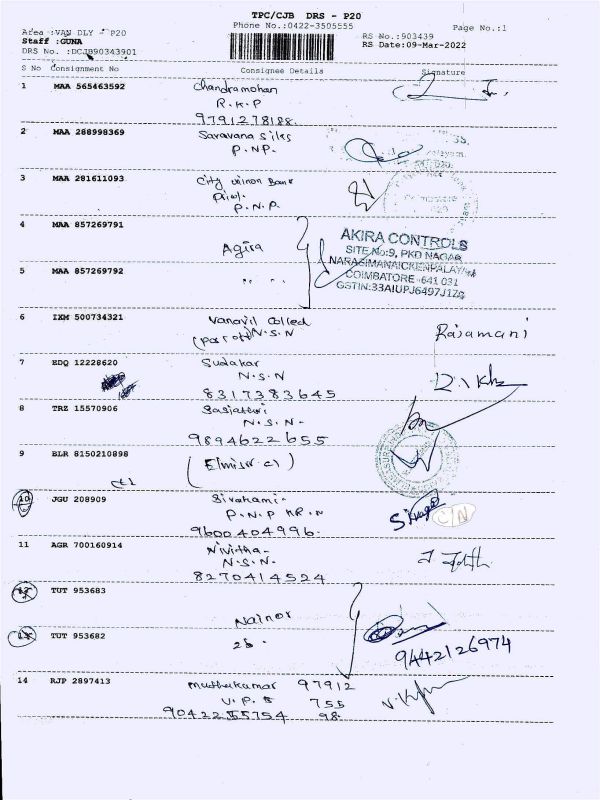 TPC/CJB DRS - P20
Phone No.:0422-3505555
Area :VAN DLY - P20
Staff :GUNA
DRS No. :DCJB90343901
RS No.:903439
RS Date:09-Mar-2022
Page No.:1
S No Consignment No Consignee Details Signature
1 MAA 565463592 Chandramohan
R.K.P
9791278188
2 MAA 288998369 Saravana Silks
P.N.P.
3 MAA 281611093 City Union Bank
P.N.P.
4 MAA 857269791
Agira
5 MAA 857269792
AKIRA CONTROLS
SITE No:9, PKD NAGAR
NARASIMANAICKENPALAYAM
COIMBATORE - 641 031
GSTIN:33AIUPJ6497J1ZG
6 IXM 500734321 Vanavil Colled
N.S.N Rajamani
7 EDQ 12228620 Sudakar
N.S.N
8317383645
8 TRZ 15570906
N.S.N.
9894622655
9 BLR 8150210898
10 JGU 208909 Sivakami
P.N.P
9600404996
11 AGR 700160914 Nivitha
N.S.N.
8270414524
12 TUT 953683
Nainor
13 TUT 953682
28.
9442126974
14 RJP 2897413 Muthukumar 97912
V.P.S 755
98.